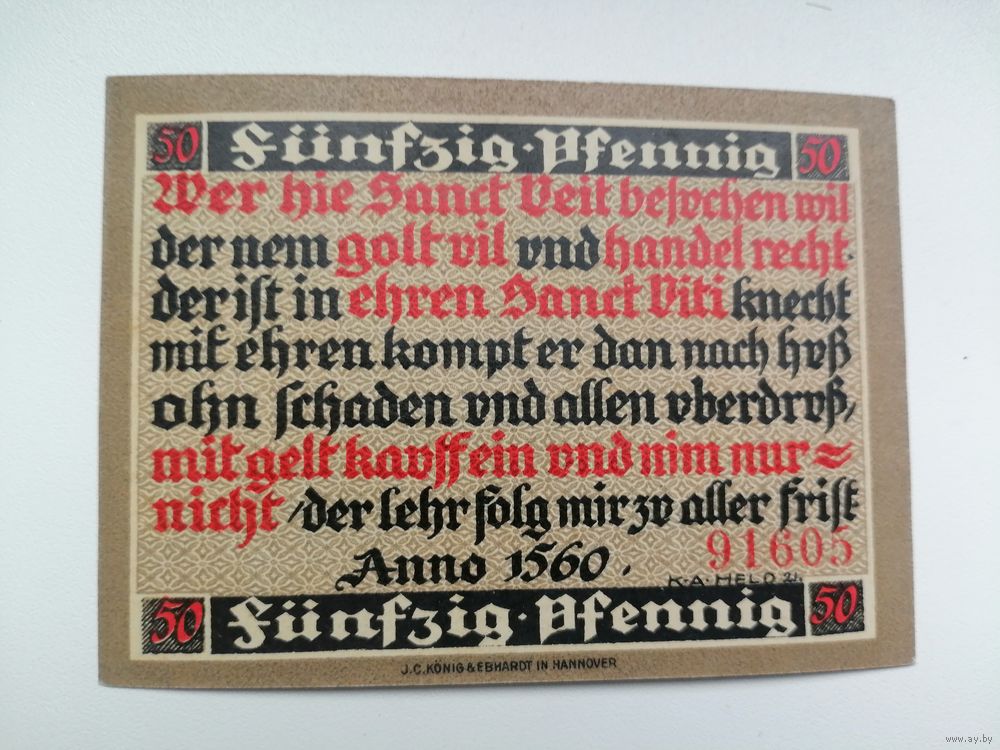 50 Fünfzig · Pfennig 50
Wer hie Sanct Veit besvchen wil
der nem golt vil vnd handel recht·
der ist in ehren Sanct Viti knecht
mit ehren kompt er dan nach hvß
ohn schaden vnd allen vberdrvß,
mit gelt kavff ein vnd nim nur=
nicht / der lehr folg mir zv aller frist
Anno 1560.
91605
K·A·HELD 21.
50 Fünfzig · Pfennig 50
J.C.KÖNIG & EBHARDT IN HANNOVER
www.ay.by